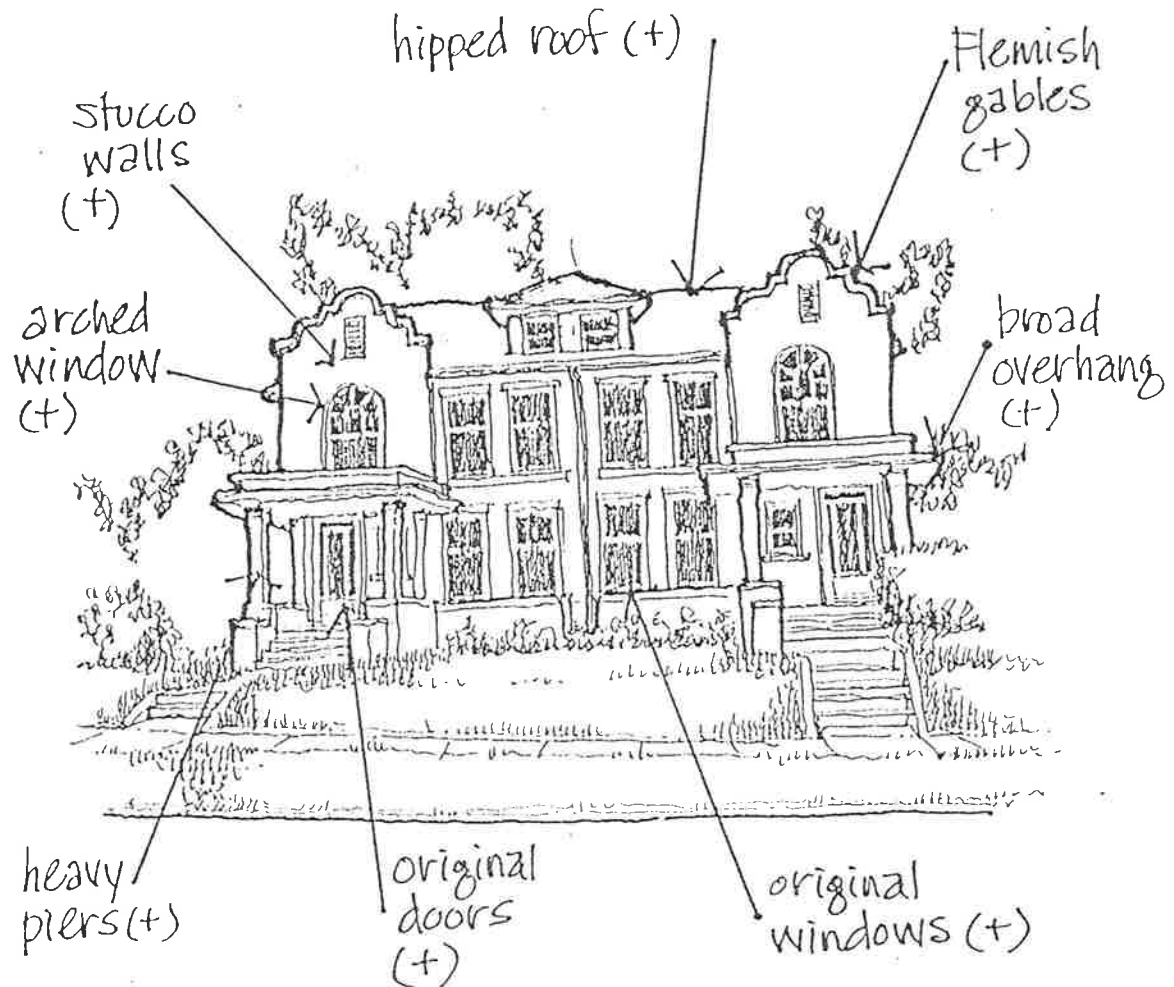 hipped roof (+)
Flemish
gables
(+)
stucco
walls
(+)
arched
window
(+)
broad
overhang
(+)
heavy
piers (+)
original
doors
(+)
original
windows (+)